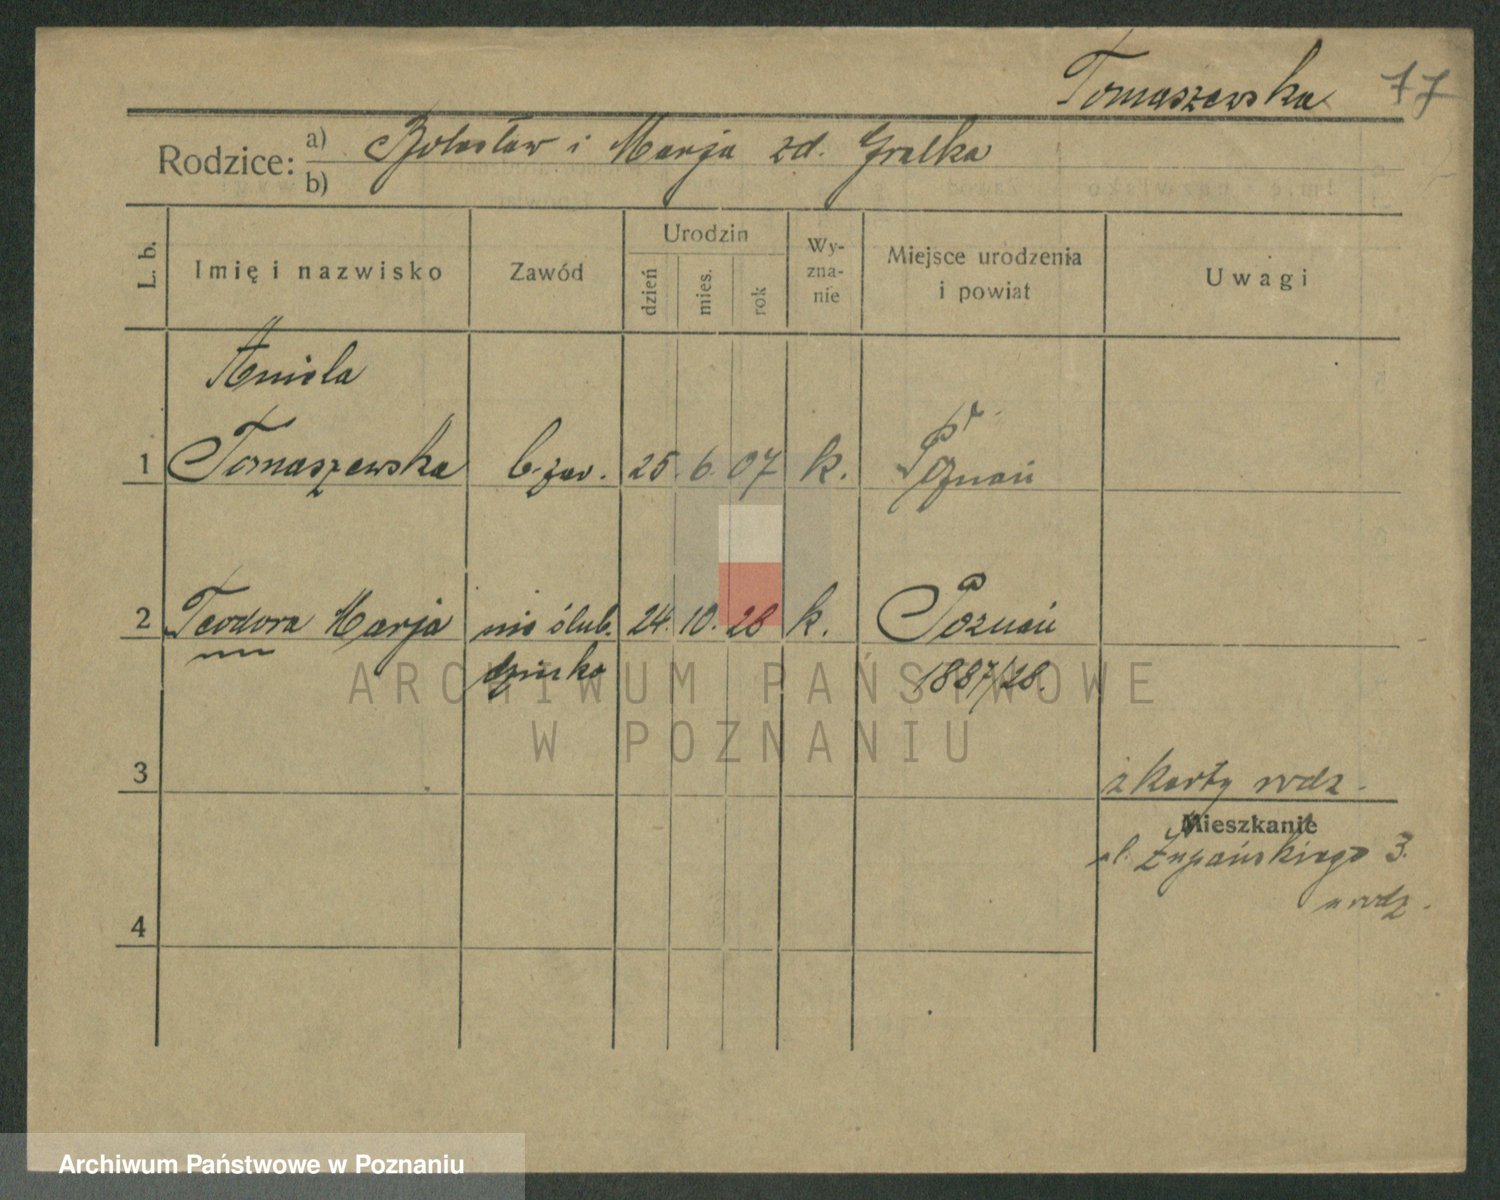 Tomaszewska 17
Rodzice: a) Bolesław i Marja zd. Gralka
b)
L. b. Imię i nazwisko Zawód Urodzin dzień mies. rok Wy-zna-nie Miejsce urodzenia i powiat Uwagi
Aniela
1 Tomaszewska b. zaw. 25. 6. 07 k. Poznań
2 Teodora Marja nie ślub. 24. 10. 28 k. Poznań
dziecko 1887/28.
ARCHIWUM PAŃSTWOWE
W POZNANIU
3 z karty rodz.
Mieszkanie
ul. Żupańskiego 3.
u rodz.
4
Archiwum Państwowe w Poznaniu